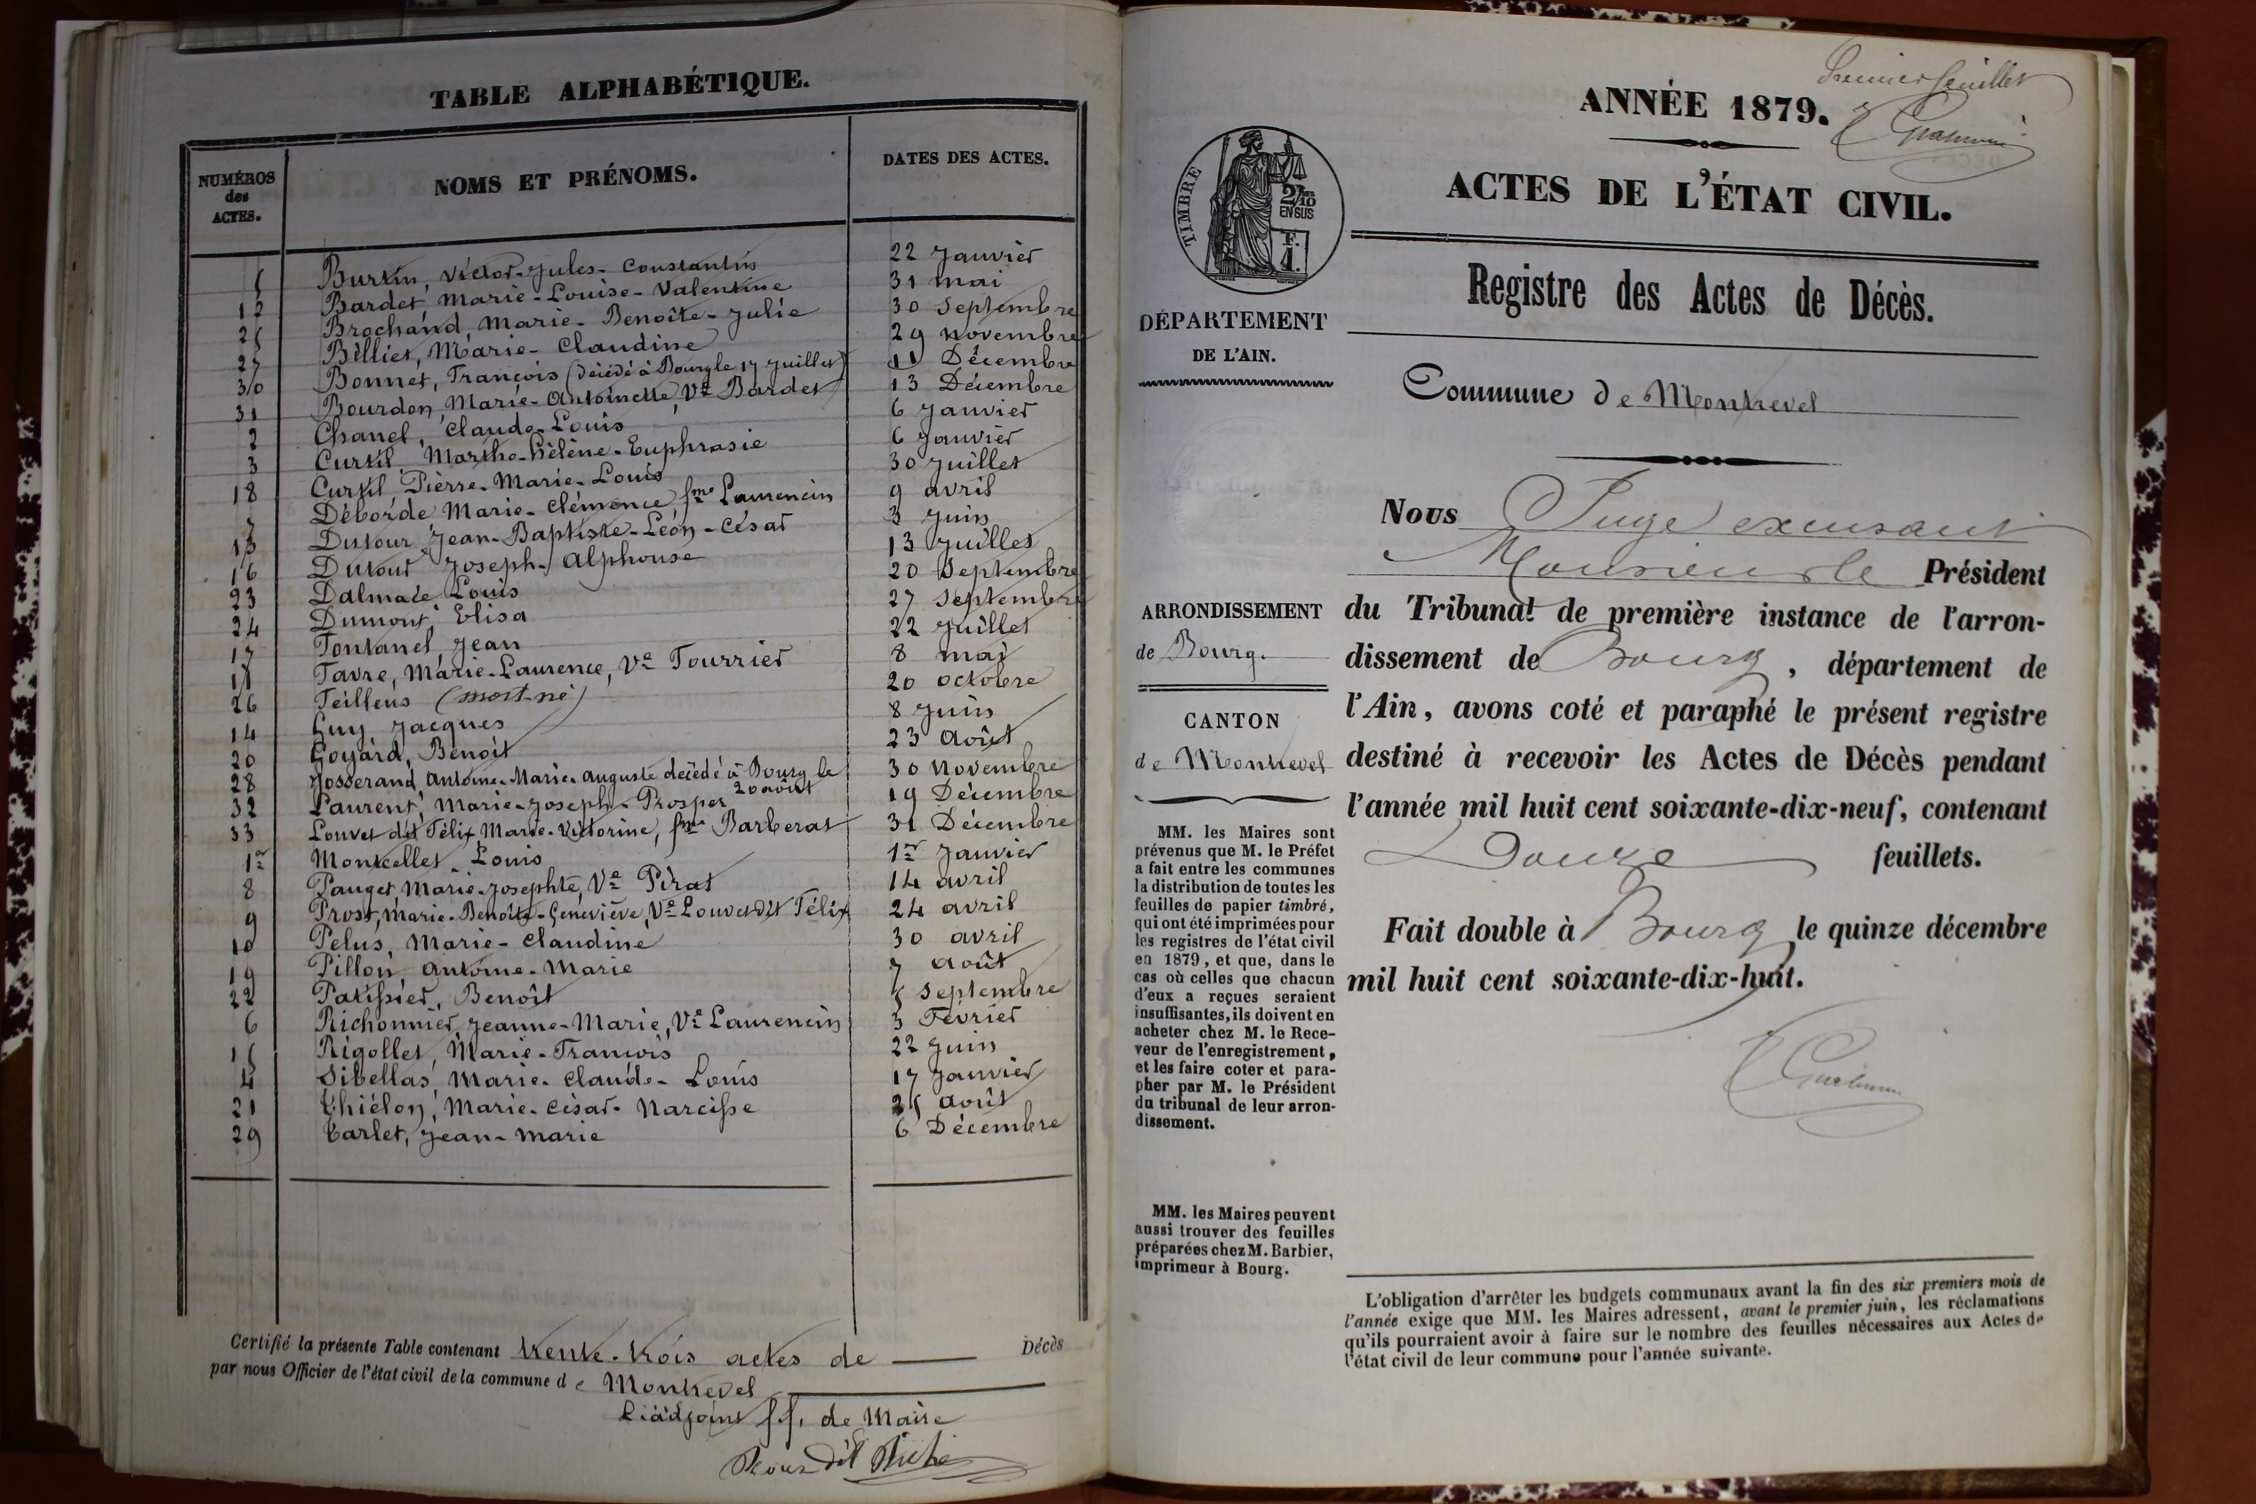 TABLE ALPHABÉTIQUE.
NUMÉROS des ACTES. NOMS ET PRÉNOMS. DATES DES ACTES.
5 Burtin, Victor-Jules-Constantin 22 Janvier
12 Bardet, Marie-Louise-Valentine 31 mai
25 Brochand, Marie-Benoîte-Julie 30 Septembre
27 Billiet, Marie-Claudine 29 novembre
30 Bonnet, François (décédé à Bourg le 17 Juillet) 11 Décembre
31 Bourdon, Marie-Antoinette, Vve Bardet 13 Décembre
2 Chanel, Claude-Louis 6 Janvier
3 Curtil, Marthe-Hélène-Euphrasie 6 Janvier
18 Curtil, Pierre-Marie-Louis 30 Juillet
7 Déborde Marie-Clémence, fme Laurencin 9 avril
13 Dutour Jean-Baptiste-Léon-César 3 Juin
16 Dutour Joseph-Alphonse 13 Juillet
23 Dalmace Louis 20 Septembre
24 Dumont, Elisa 27 Septembre
17 Fontanel, Jean 22 Juillet
11 Favre, Marie-Laurence, Ve Fourrier 8 mai
26 Feillens (mort-né) 20 octobre
14 Guy, Jacques 8 Juin
20 Goyard, Benoît 23 Août
28 Josserand, Antoine-Marie-Auguste décédé à Bourg le 20 août 30 Novembre
32 Laurent, Marie-Joseph-Prosper 19 Décembre
33 Louvet dit Félix Marie-Victorine, fme Barberat 31 Décembre
1er Montcellet, Louis 1er Janvier
8 Pauget, Marie-Josephte, Ve Pirat 14 avril
9 Prost, Marie-Benoîte-Geneviève, Ve Louvet dit Félix 24 avril
10 Pelus, Marie-Claudine 30 avril
19 Pillon, Antoine-Marie 7 Août
22 Patissier, Benoît 5 Septembre
6 Richonnier, Jeanne-Marie, Ve Laurencin 3 Février
15 Rigollet, Marie-François 22 Juin
4 Sibellas, Marie-Claude-Louis 17 Janvier
21 Thiélon, Marie-César-Narcisse 25 août
29 Tarlet, Jean-Marie 6 Décembre
Certifié la présente Table contenant trente-trois actes de Décès
par nous Officier de l'état civil de la commune de Montrevel
L'adjoint ff. de Maire
Premier feuillet
ANNÉE 1879.
ACTES DE L'ÉTAT CIVIL.
TIMBRE
2/10
EN SUS
F.
1.
Registre des Actes de Décès.
DÉPARTEMENT
DE L'AIN.
Commune de Montrevel
Nous Juge excusant
Monsieur le Président
du Tribunal de première instance de l'arron-
dissement de Bourg, département de
l'Ain, avons coté et paraphé le présent registre
destiné à recevoir les Actes de Décès pendant
l'année mil huit cent soixante-dix-neuf, contenant
Douze feuillets.
Fait double à Bourg le quinze décembre
mil huit cent soixante-dix-huit.
ARRONDISSEMENT
de Bourg.
CANTON
de Montrevel
MM. les Maires sont
prévenus que M. le Préfet
a fait entre les communes
la distribution de toutes les
feuilles de papier timbré,
qui ont été imprimées pour
les registres de l'état civil
en 1879, et que, dans le
cas où celles que chacun
d'eux a reçues seraient
insuffisantes, ils doivent en
acheter chez M. le Rece-
veur de l'enregistrement,
et les faire coter et para-
pher par M. le Président
du tribunal de leur arron-
dissement.
MM. les Maires peuvent
aussi trouver des feuilles
préparées chez M. Barbier,
imprimeur à Bourg.
L'obligation d'arrêter les budgets communaux avant la fin des six premiers mois de
l'année exige que MM. les Maires adressent, avant le premier juin, les réclamations
qu'ils pourraient avoir à faire sur le nombre des feuilles nécessaires aux Actes de
l'état civil de leur commune pour l'année suivante.